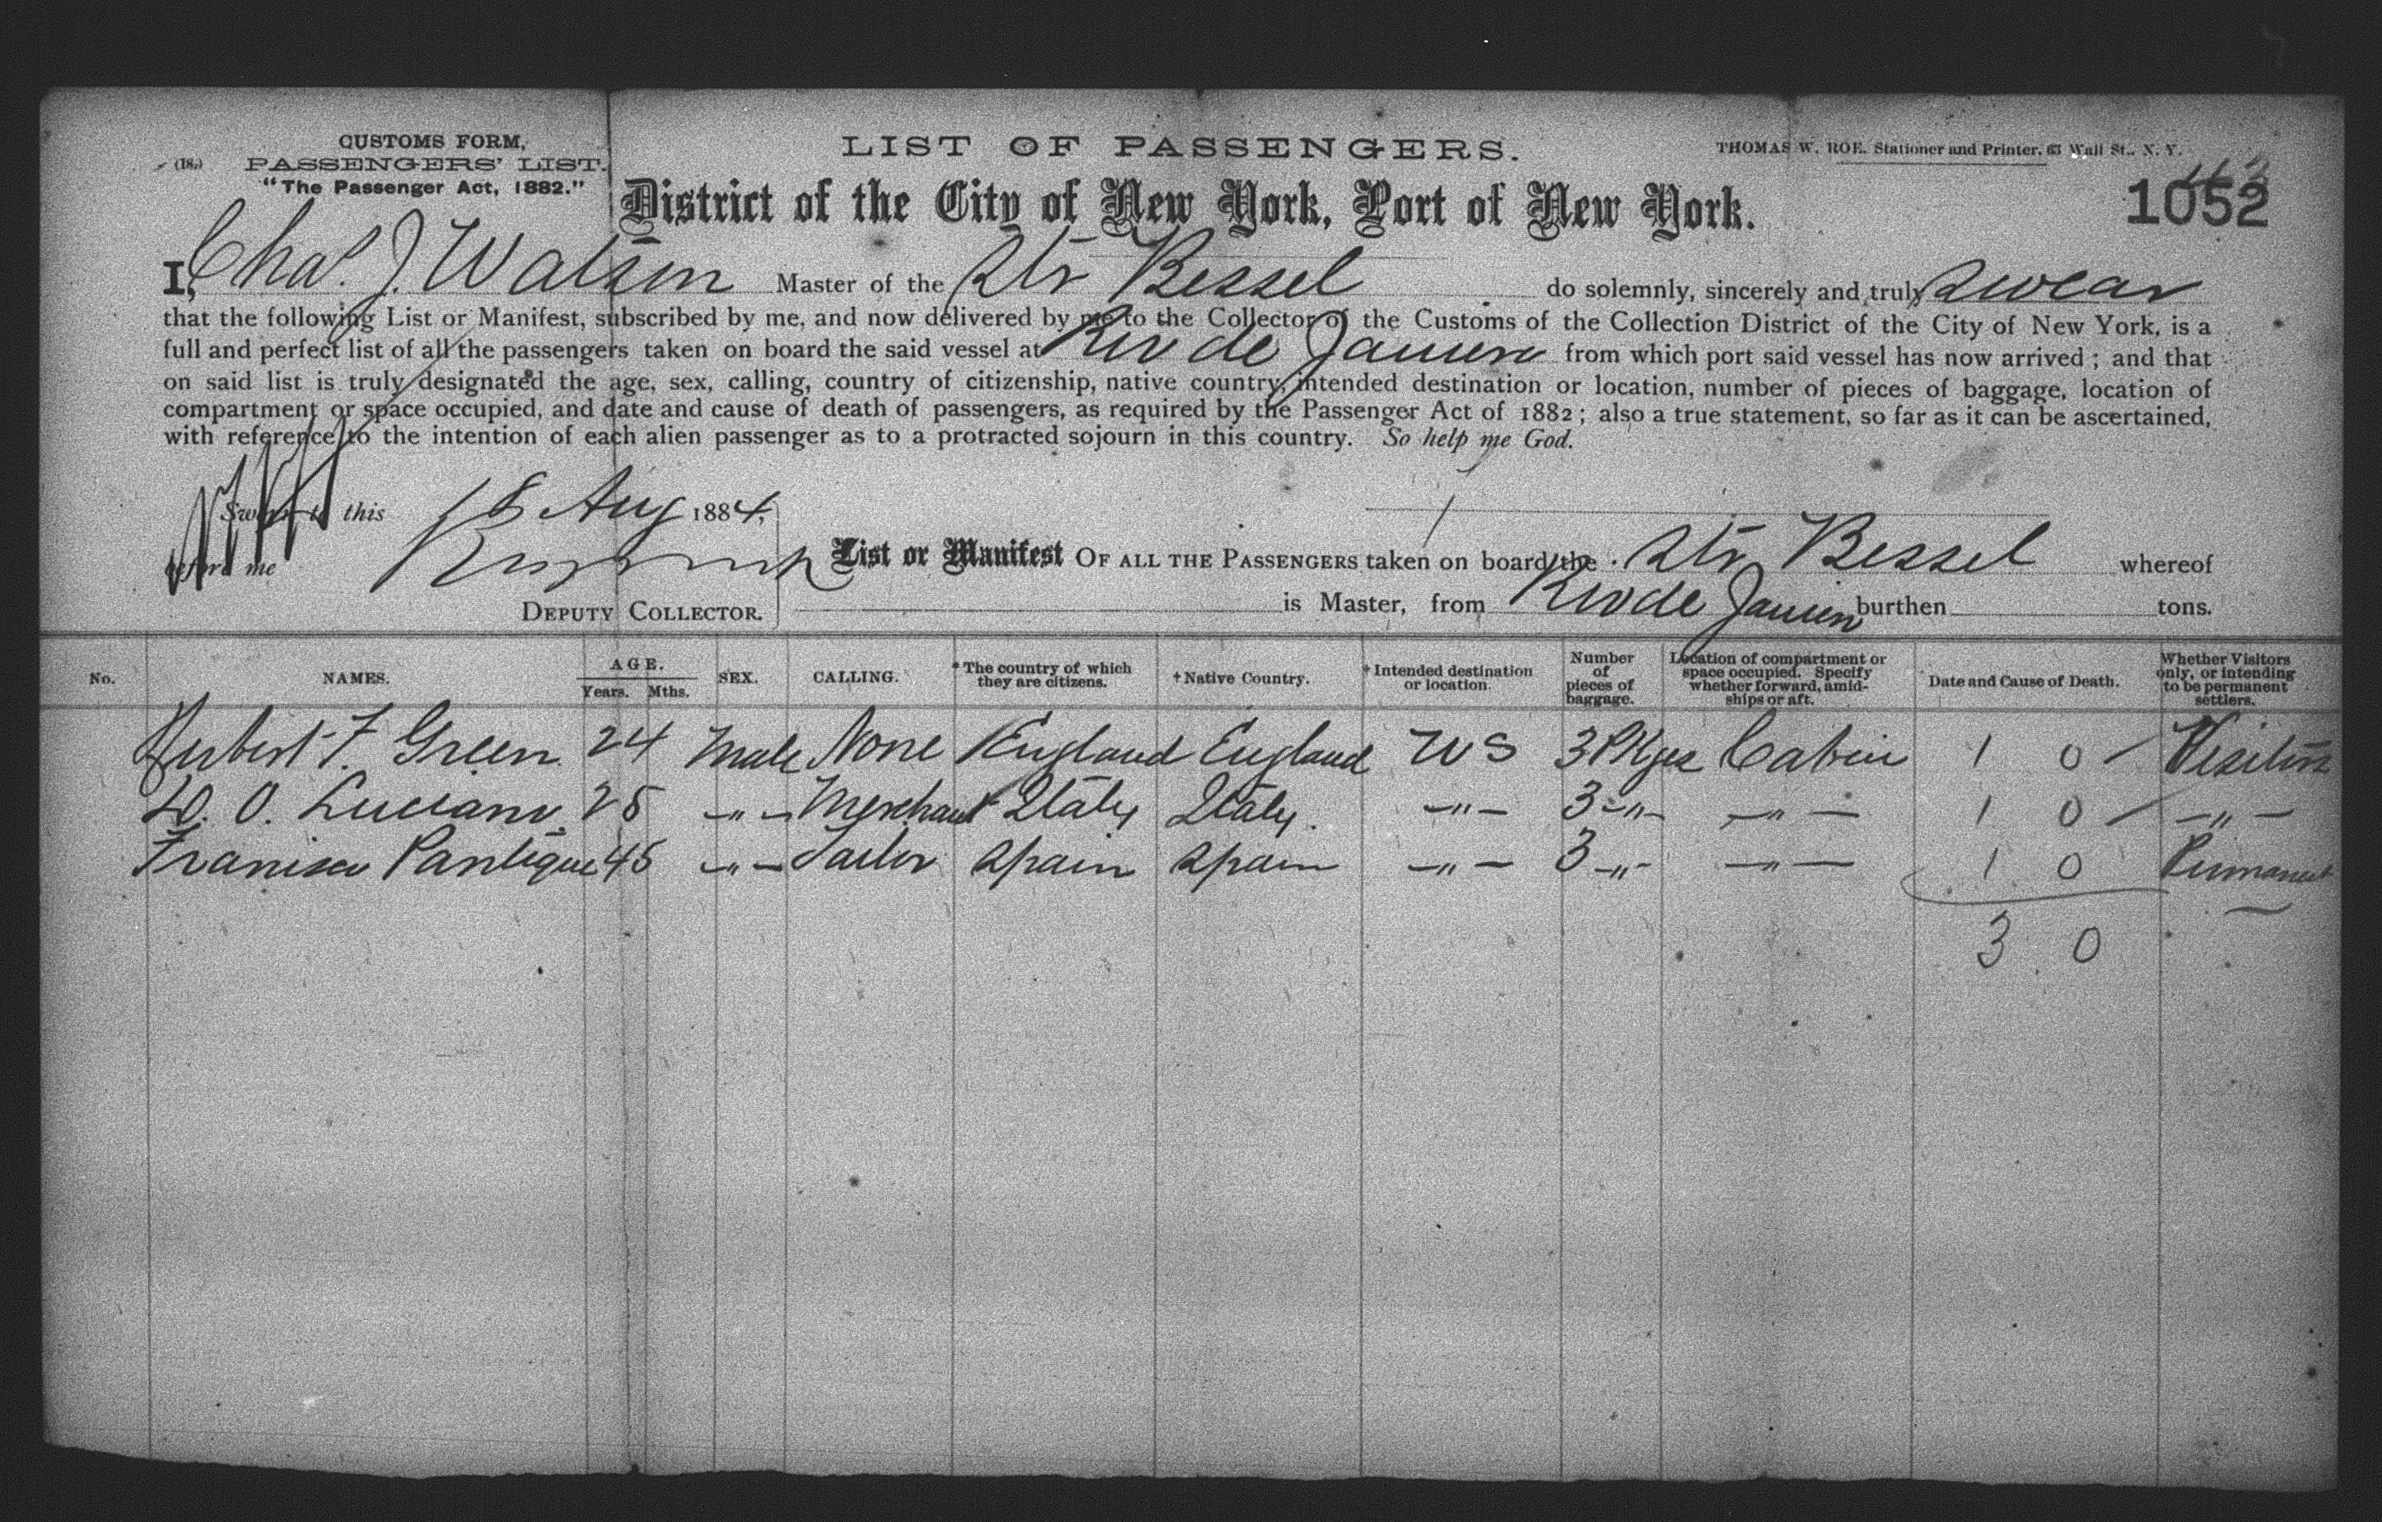 CUSTOMS FORM,
PASSENGERS' LIST.
"The Passenger Act, 1882."
LIST OF PASSENGERS.
THOMAS W. ROE. Stationer and Printer. 63 Wall St., N. Y.
District of the City of New York, Port of New York.
1052
I, Chas. J. Watson Master of the Str Bessel do solemnly, sincerely and truly swear
that the following List or Manifest, subscribed by me, and now delivered by me to the Collector of the Customs of the Collection District of the City of New York, is a
full and perfect list of all the passengers taken on board the said vessel at Rio de Janiero from which port said vessel has now arrived; and that
on said list is truly designated the age, sex, calling, country of citizenship, native country, intended destination or location, number of pieces of baggage, location of
compartment or space occupied, and date and cause of death of passengers, as required by the Passenger Act of 1882; also a true statement, so far as it can be ascertained,
with reference to the intention of each alien passenger as to a protracted sojourn in this country. So help me God.
Sworn to this 18 Aug 1884,
before me
DEPUTY COLLECTOR.
List or Manifest OF ALL THE PASSENGERS taken on board the Str Bessel whereof
is Master, from Rio de Janiero burthen tons.
No. NAMES. AGE. Years. Mths. SEX. CALLING. *The country of which they are citizens. †Native Country. †Intended destination or location. Number of pieces of baggage. Location of compartment or space occupied. Specify whether forward, amidships or aft. Date and Cause of Death. Whether Visitors only, or intending to be permanent settlers.
Herbert F. Green 24 Male None England England U S 3 Pkges Cabin 1 0 Visitors
D. O. Luciano 28 -"- Merchant Italy Italy. -"- 3 -"- -"- 1 0 -"-
Francisco Pantique 45 -"- Tailor Spain Spain -"- 3 -"- -"- 1 0 Permanent
3 0